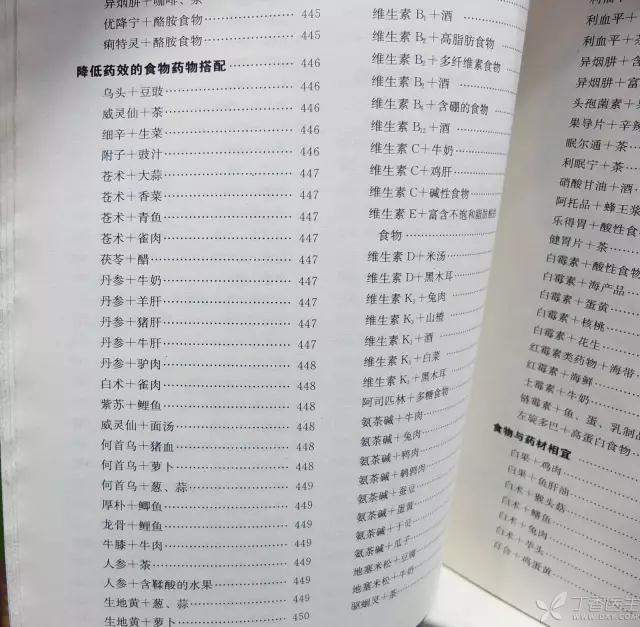 优降宁＋酪胺食物……445
痢特灵＋酪胺食物……445
降低药效的食物药物搭配……446
乌头＋豆豉……446
威灵仙＋茶……446
细辛＋生菜……446
附子＋豉汁……446
苍术＋大蒜……447
苍术＋香菜……447
苍术＋青鱼……447
苍术＋雀肉……447
茯苓＋醋……447
丹参＋牛奶……447
丹参＋羊肝……447
丹参＋猪肝……447
丹参＋牛肝……447
丹参＋驴肉……448
白术＋雀肉……448
紫苏＋鲤鱼……448
威灵仙＋面汤……448
何首乌＋猪血……448
何首乌＋萝卜……448
何首乌＋葱、蒜……449
厚朴＋鲫鱼……449
龙骨＋鲤鱼……449
牛膝＋牛肉……449
人参＋茶……449
人参＋含鞣酸的水果……449
生地黄＋葱、蒜……449
生地黄＋萝卜……450
维生素 B＋酒
维生素 B＋高脂肪食物
维生素 B＋多纤维素食物
维生素 B＋酒
维生素 B＋含硼的食物
维生素 B₁₂＋酒
维生素 C＋牛奶
维生素 C＋鸡肝
维生素 C＋碱性食物
维生素 E＋富含不饱和脂肪酸的
食物
维生素 D＋米汤
维生素 D＋黑木耳
维生素 K＋兔肉
维生素 K＋山楂
维生素 K＋酒
维生素 K＋白菜
维生素 K＋黑木耳
阿司匹林＋多糖食物
氨茶碱＋牛肉
氨茶碱＋兔肉
氨茶碱＋鸭肉
氨茶碱＋鹌鹑肉
氨茶碱＋蚕豆
氨茶碱＋蛋黄
氨茶碱＋干豆
氨茶碱＋瓜子
地塞米松＋豆腐
地塞米松＋牛奶
驱蛔灵＋茶
利血平＋
利血平＋
异烟肼＋
异烟肼＋富
头孢菌素＋
果导片＋辛辣
眠尔通＋茶
利眠宁＋茶
硝酸甘油＋酒
阿托品＋蜂王浆
乐得胃＋酸性食
健胃片＋茶
白霉素＋酸性食物
白霉素＋海产品
白霉素＋蛋黄
白霉素＋核桃
白霉素＋花生
红霉素类药物＋海带
红霉素＋海鲜
土霉素＋牛奶
链霉素＋鱼、蛋、乳制品
左旋多巴＋高蛋白食物
食物与药材相宜
白果＋鸡肉
白果＋鱼肝油
白术＋猴头菇
白术＋鳝鱼
白术＋兔肉
白术＋芋头
百合＋鸡蛋黄
丁香医生